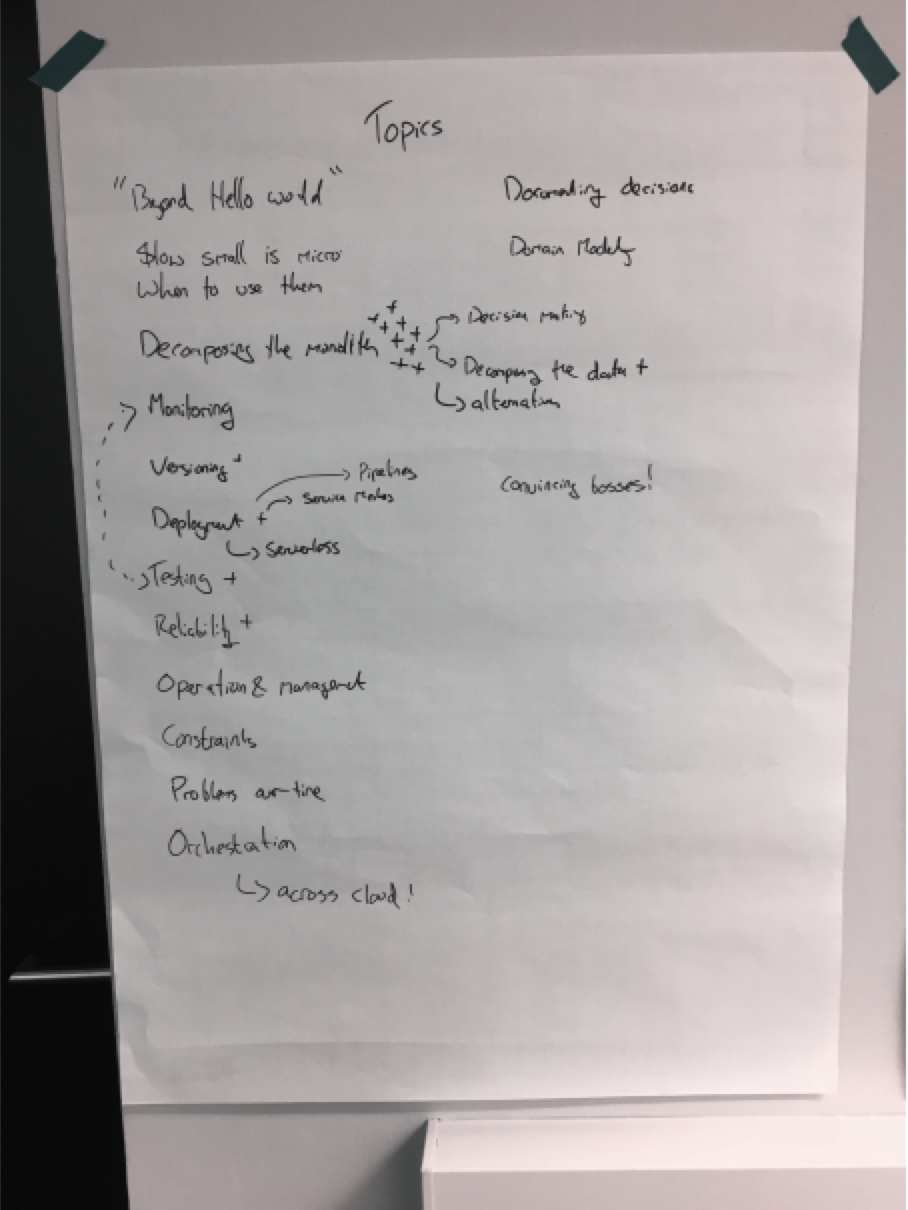 Topics
"Beyond Hello world"
How small is micro
When to use them
Decomposing the monolith
+ + + + + + + + +
Decision making
Decomposing the data +
alternatives
Monitoring
Versioning +
Deployment +
Pipelines
Service Meshes
Serverless
Testing +
Reliability +
Operation & management
Constraints
Problems over-time
Orchestration
across cloud!
Documenting decisions
Domain Modeling
Convincing bosses!